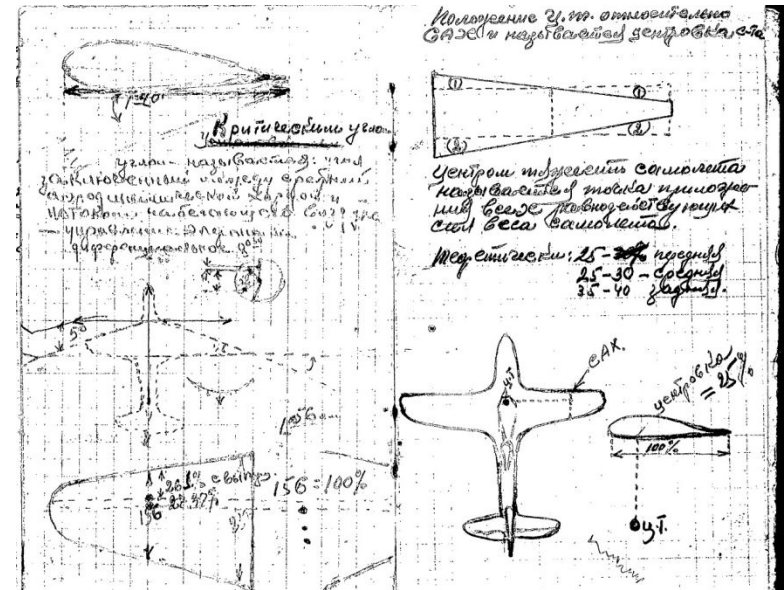 Критическим углом
углом называется: угол
заключенный между средней
аэродинамической хордой и
потоком набегающего воздуха
управление элеронами
диференциальное
50
156
26,1% с выпущ
156
156 = 100%
Положение ц.т. относительно
САХ и называется центровка с-та
(1)
(1)
(2)
(2)
Центром тяжести самолета
называется точка приложе-
ния всех равнодействующих
сил веса самолета.
25 - передняя
25-30 - средняя
35-40 задняя.
САХ.
ц.т
центровка
= 25%
100%
ц.т.